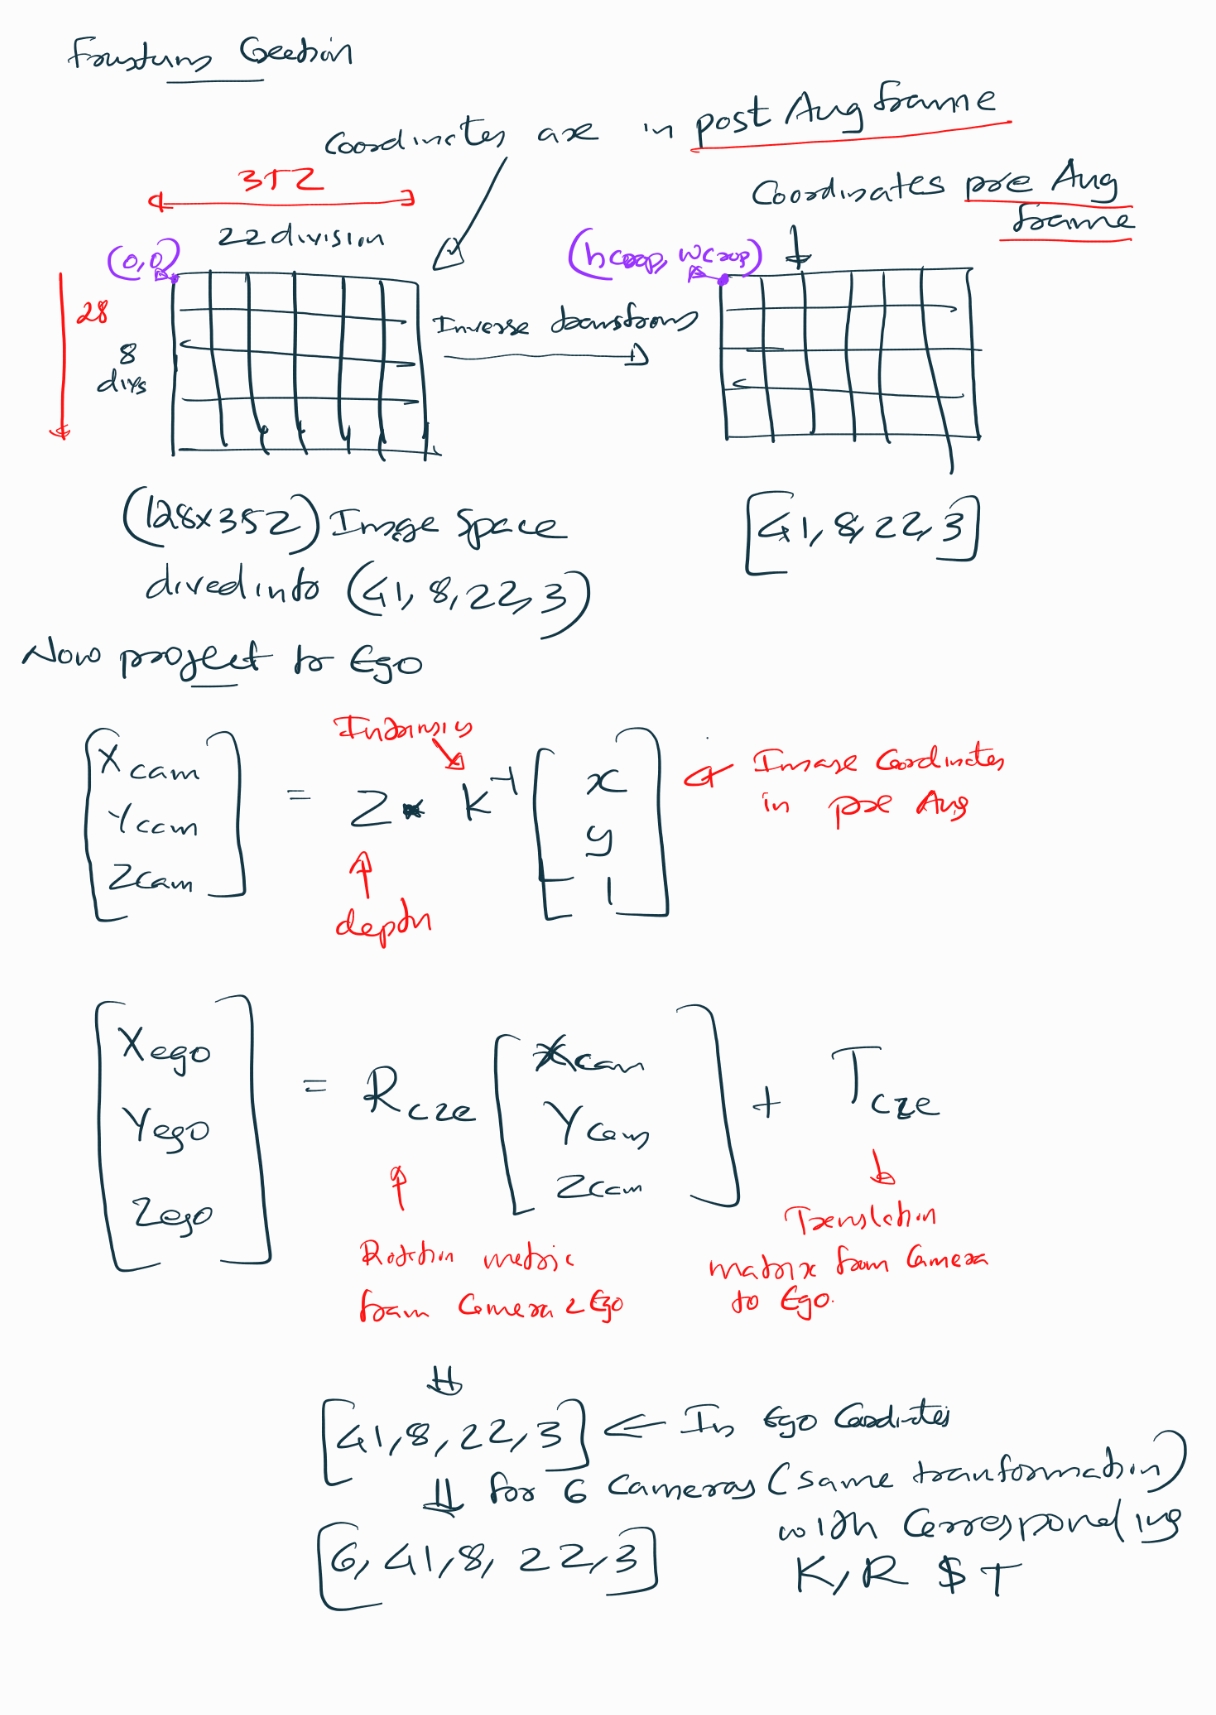 Frustum Creation
Coordinates are in post Aug frame
352
22 division
Coordinates pre Aug
frame
(0,0)
(hcrop, wcrop)
28
8
divs
Inverse transform
(128x352) Image Space
dived into (41, 8, 22, 3)
[41, 8, 22, 3]
Now project to Ego
Intrinsics
Xcam
Ycam
Zcam
= Z * K-1
x
y
1
Image Coordinates
in pre Aug
depth
Xego
Yego
Zego
= Rc2e
Xcam
Ycam
Zcam
+ Tc2e
Rotation metric
from Camera 2 Ego
Translation
matrix from Camera
to Ego.
[41, 8, 22, 3] ← In Ego Coordinates
for 6 Cameras (same tranformation)
with Corresponding
[6, 41, 8, 22, 3]
K, R $ T